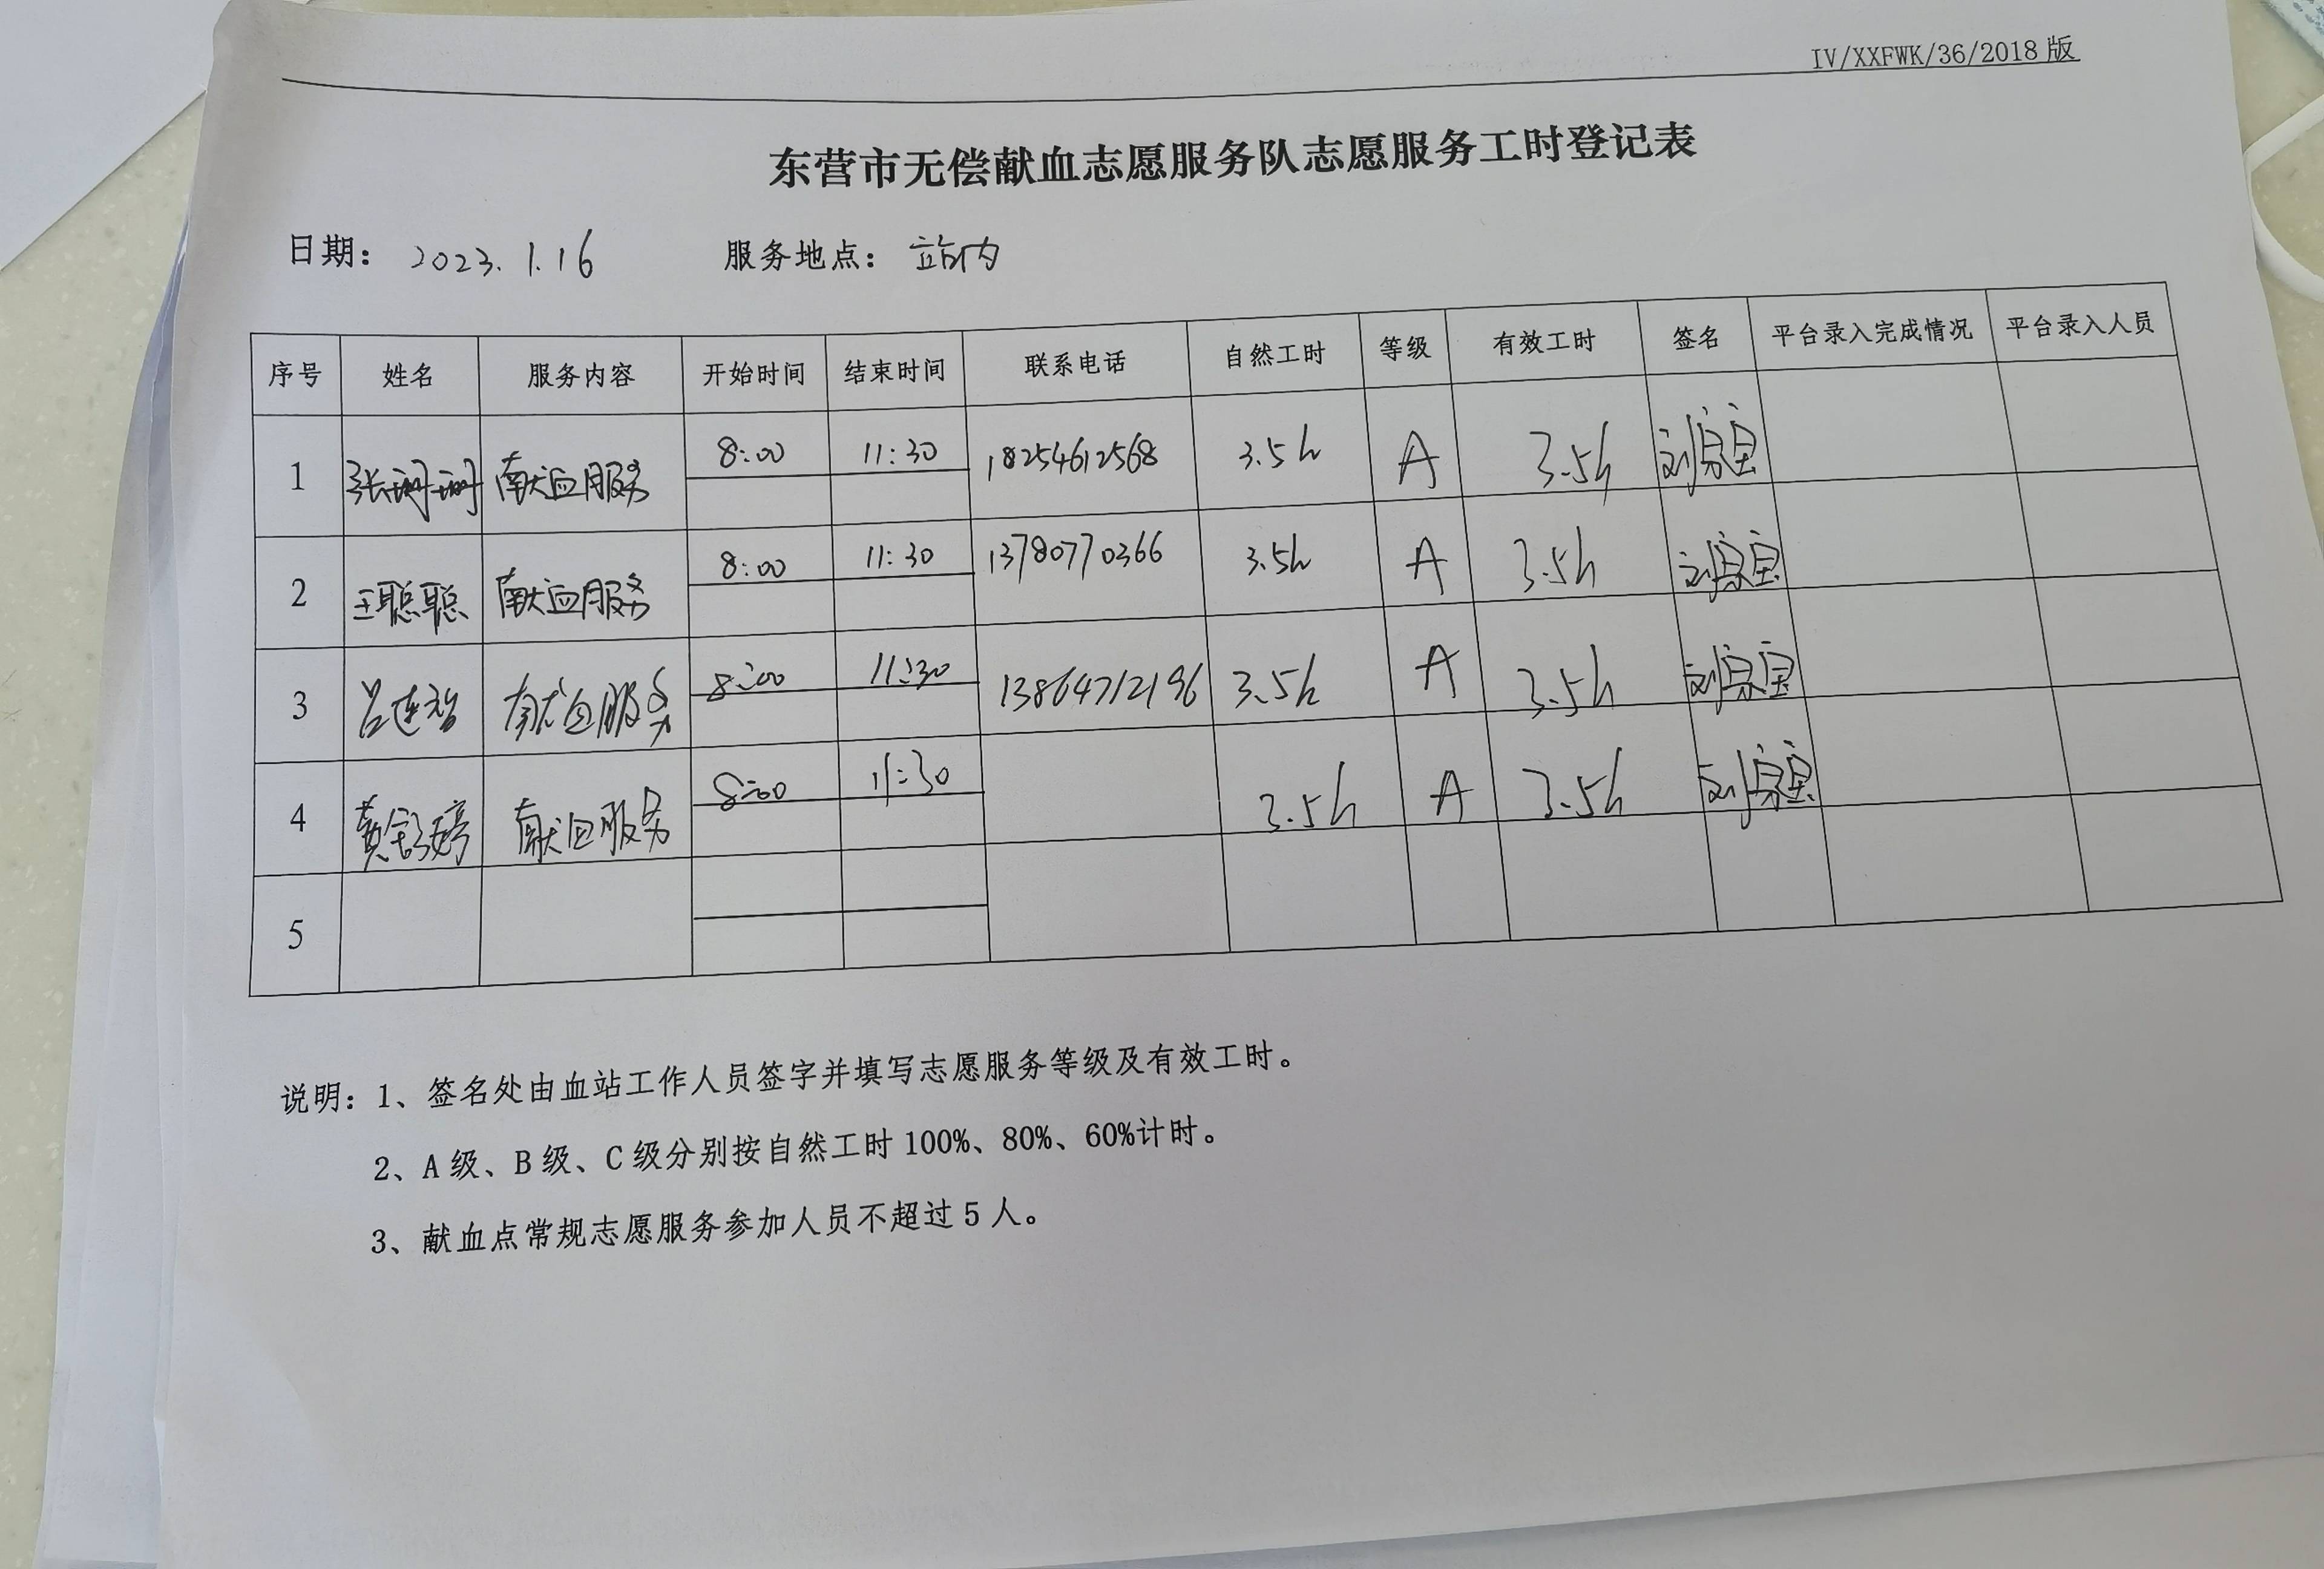 IV/XXFWK/36/2018版
东营市无偿献血志愿服务队志愿服务工时登记表
日期： 2023.1.16 服务地点： 站内
序号 姓名 服务内容 开始时间 结束时间 联系电话 自然工时 等级 有效工时 签名 平台录入完成情况 平台录入人员
1 张珊珊 献血服务 8:00 11:30 18254612568 3.5h A 3.5h
2 王聪聪 献血服务 8:00 11:30 13780770366 3.5h A 3.5h
3 吕连智 献血服务 8:00 11:30 13864712196 3.5h A 3.5h
4 黄 婷 献血服务 8:00 11:30 3.5h A 3.5h
5
说明：1、签名处由血站工作人员签字并填写志愿服务等级及有效工时。
2、A级、B级、C级分别按自然工时100%、80%、60%计时。
3、献血点常规志愿服务参加人员不超过5人。